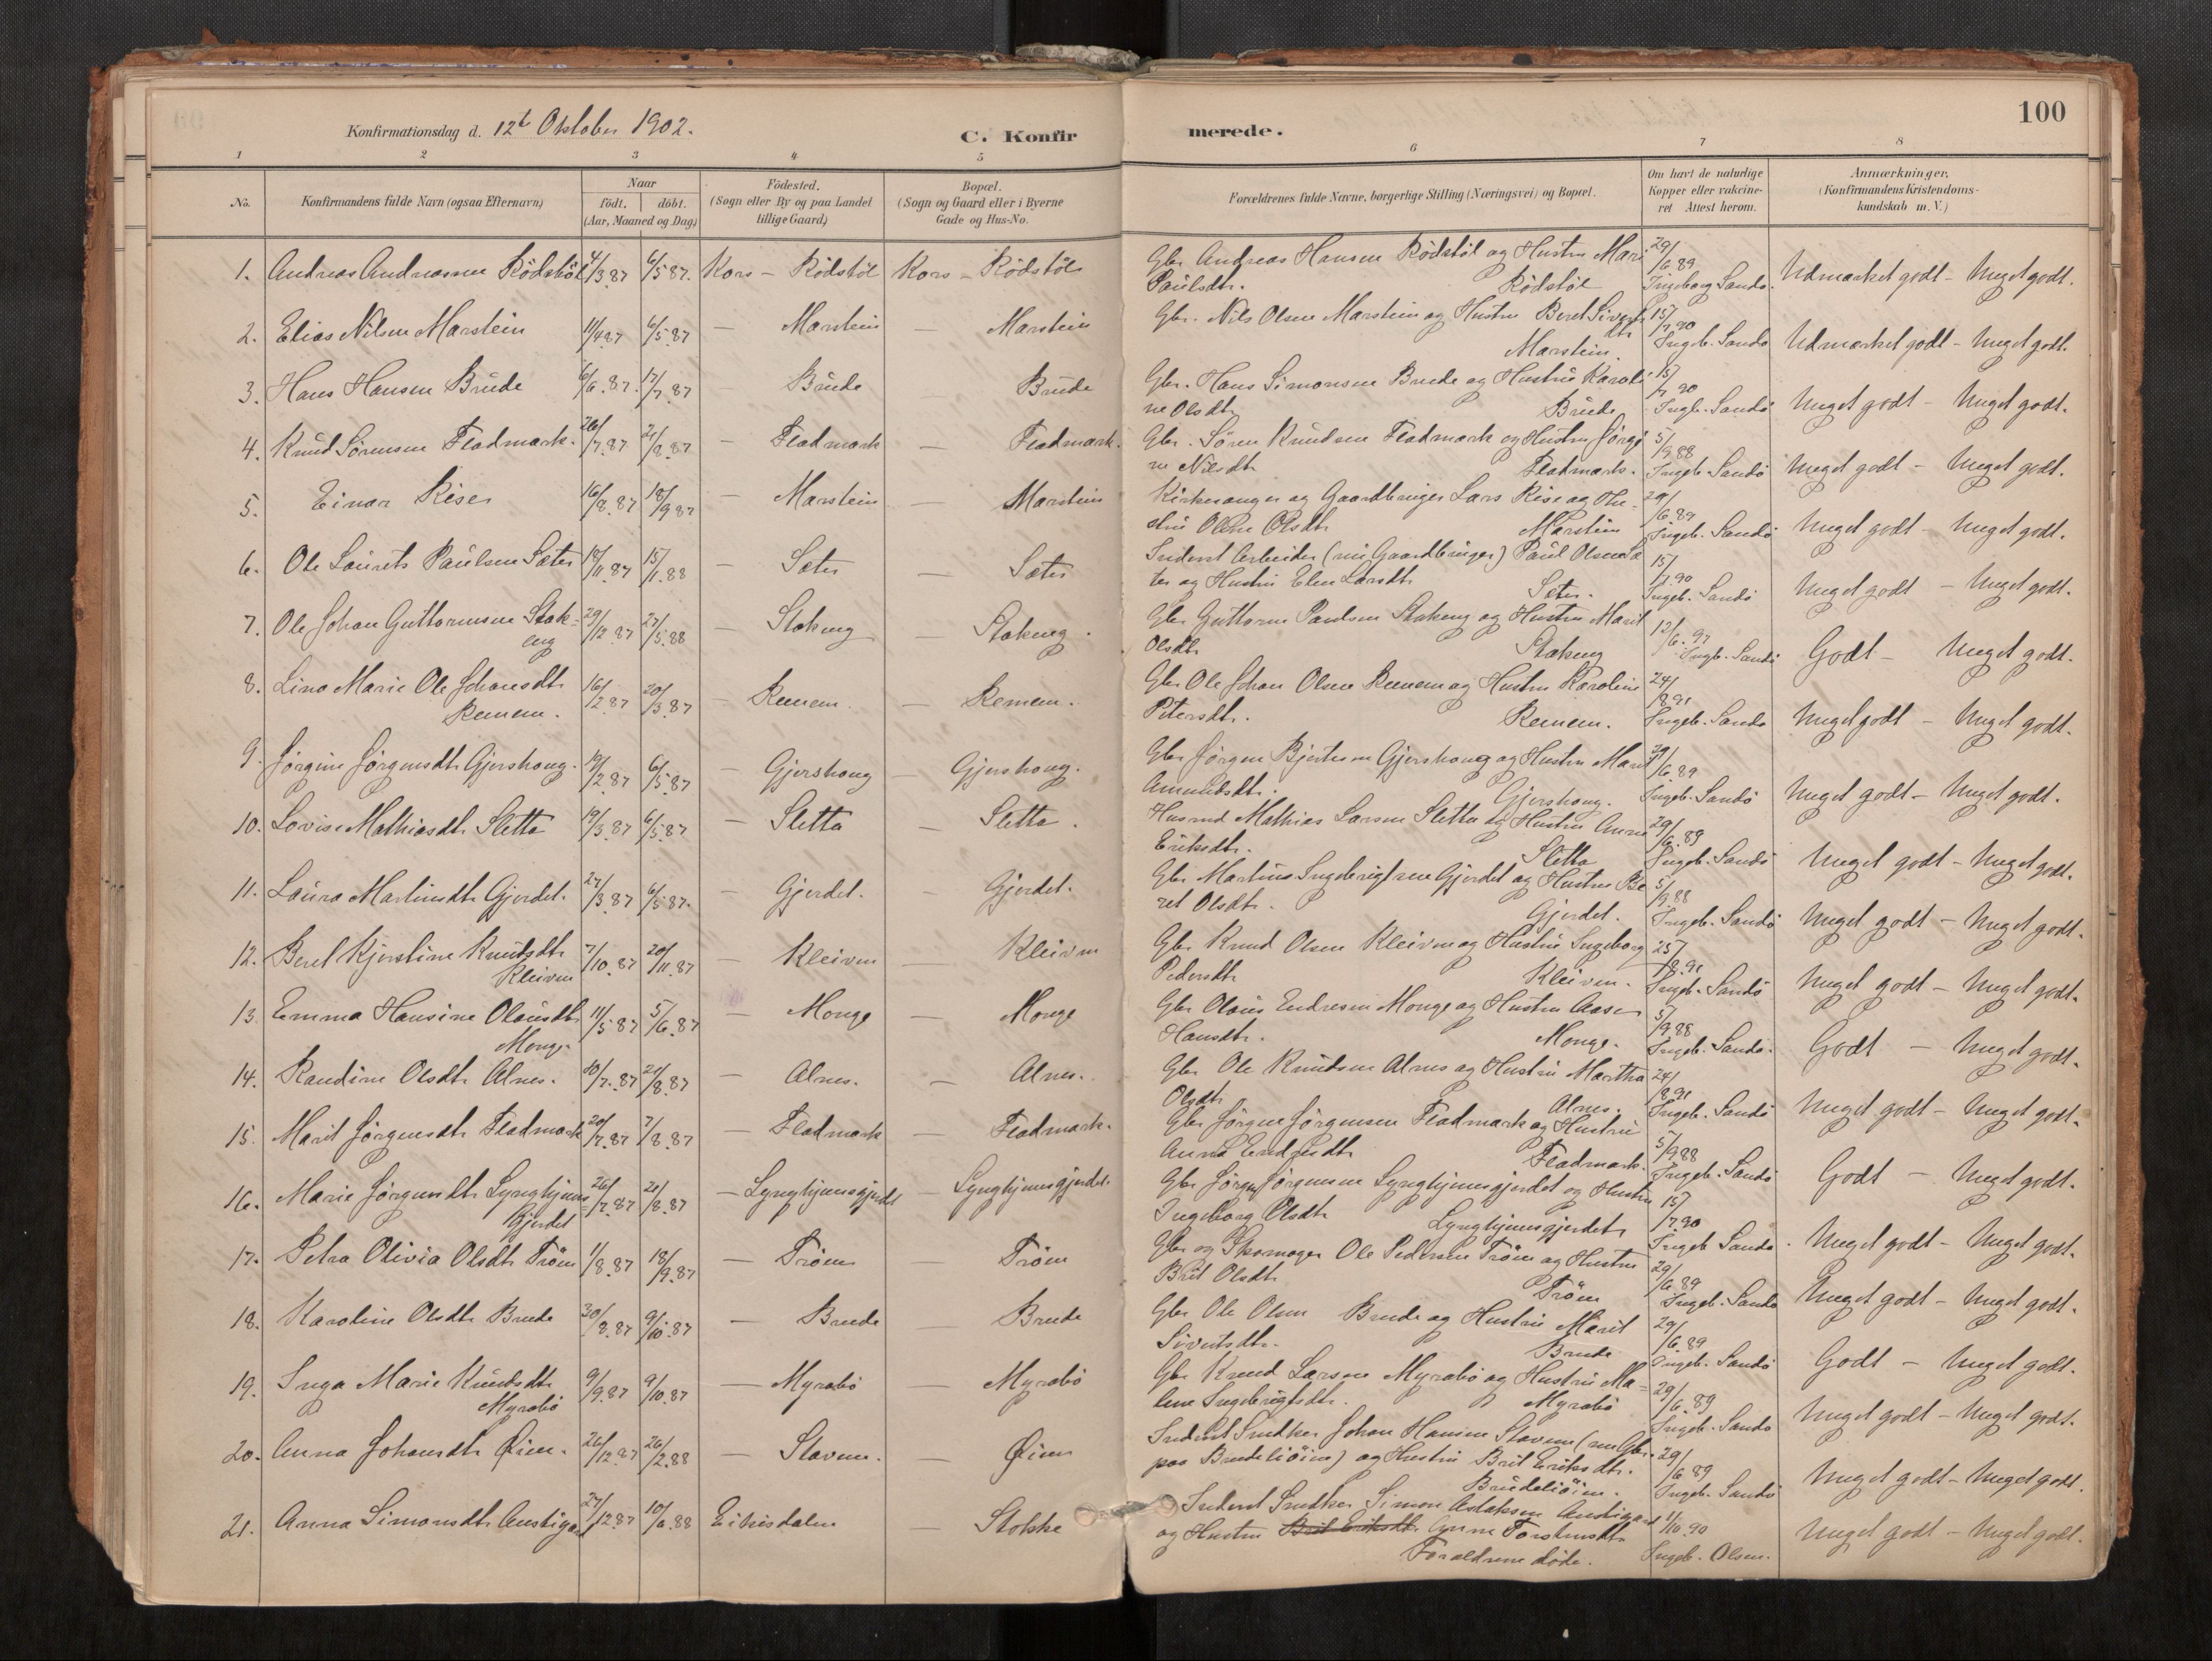 100
Konfirmationsdag d. 12te Oktober 1902.
C. Konfirmerede.
1 2 3 4 5 6 7 8
No. Konfirmandens fulde Navn (ogsaa Efternavn) Naar født. døbt. (Aar, Maaned og Dag) Fødested. (Sogn eller By og paa Landet tillige Gaard) Bopæl. (Sogn og Gaard eller i Byerne Gade og Hus-No. Forældrenes fulde Navne, borgerlige Stilling (Næringsvei) og Bopæl. Om havt de naturlige Kopper eller vakcineret Attest herom. Anmærkninger, (Konfirmandens Kristendomskundskab m. V.)
1. Andreas Andreassen Rödstöl 4/3 87 6/5 87. Kors – Rödstöl Kors – Rödstöl Gbr. Andreas Hansen Rödstöl og Hustru Mari 29/6.89 Udmærket godt – Meget godt.
Paulsdtr. Rödstöl Ingeborg Sandö.
2. Elias Nilsen Marstein 11/4 87 6/5 87 — Marstein — Marstein Gbr. Nils Olsen Marstein og Hustru Beret Siverts 15/7 90 Udmærket godt – Meget godt.
dtr. Marstein. Ingeb. Sandö
3. Hans Hansen Brude 6/6.87. 17/7.87 Brude Brude Gbr. Hans Simonsen Brude og Hustru Karoli 15/7 90 Meget godt – Meget godt.
ne Olsdtr. Brude Ingb. Sandö
4. Knud Sörensen Fladmark. 26/7.87 21/8.87 — Fladmark — Fladmark. Gbr. Sören Knudsen Fladmark og Hustru Jörgi 5/9 88 Meget godt – Meget godt.
ne Nilsdtr Fladmark. Ingeb. Sandö
5. Einar Rise 16/8.87 18/9 87 — Marstein — Marstein Kirkesanger og Gaardbruger Lars Rise og Hu- 29/6 89 Meget godt – Meget godt.
stru Oline Olsdtr Marstein Ingeb. Sandö
6. Ole Laurits Paulsen Sæter 18/11.87 15/1.88 — Sæter — Sæter Inderst Arbeider (nu Gaardbruger) Paul Olsen Sæ 15/7.90 Meget godt – Meget godt.
ter og Hustru Elen Larsdtr Sæter. Ingeb. Sandö
7. Ole Johan Guttormsen Stok- 29/12 87 27/5.88 — Stokeng — Stokeng. Gbr Guttorm Paulsen Stokeng og Hustru Marit 12/6.97 Godt – Meget godt.
eng Olsdtr. Stokeng Ingb. Sandö
8. Lina Marie Ole Johansdtr 16/2 87 20/3 87 — Remem. — Remem. Gbr Ole Johan Olsen Remem og Hustru Karoline 24/8 91 Meget godt – Meget godt.
Remem. Petersdtr. Remem. Ingeb. Sandö
9. Jörgine Jörgensdtr Gjershaug. 19/2.87 6/5 87 — Gjershaug — Gjershaug. Gbr Jörgen Gjershaug og Hustru Marit 29/6.89 Meget godt – Meget godt.
Amundsdtr. Gjershaug. Ingeb. Sandö
10. Lovise Mathiasdtr Sletta 19/3.87 6/5 87 — Sletta — Sletta. Husmd Mathias Larsen Sletta og Hustru Anne 29/6.89 Meget godt – Meget godt.
Eriksdtr. Sletta Ingeb. Sandö
11. Laura Martinsdtr Gjerdet. 27/3 87 6/5 87. — Gjerdet. — Gjerdet. Gbr Martinus Ingebrigtsen Gjerdet og Hustru Be 5/9.88 Meget godt – Meget godt.
ret Olsdtr. Gjerdet. Ingeb. Sandö
12. Beret Kjerstine Knudsdtr 7/10.87 20/11.87 — Kleiven — Kleiven Gbr Knud Olsen Kleiven og Hustru Ingeborg 25/8.91 Meget godt – Meget godt.
Kleiven Pedersdtr Kleiven. Ingeb. Sandö
13. Emma Hansine Olausdtr 11/5 87 5/6.87 — Monge — Monge Gbr Olaus Endresen Monge og Hustru Aase 5/9 88 Godt – Meget godt.
Monge. Hansdtr. Monge. Ingeb. Sandö.
14. Randine Olsdtr Alnes. 10/7.87 21/8.87 — Alnes. — Alnes. Gbr Ole Knudsen Alnes og Hustru Martha 24/8 91 Meget godt – Meget godt.
Olsdtr Alnes. Ingeb. Sandö
15. Marit Jörgensdtr Fladmark 20/7.87 7/8.87 — Fladmark — Fladmark. Gbr Jörgen Jörgensen Fladmark og Hustru 5/9 88 Godt – Meget godt.
Anna Fladmark. Ingeb. Sandö
16. Marie Jörgensdtr Lynghjems 26/7.87 21/8.87 — Lynghjemsgjerdet — Lynghjemsgjerdet. Gbr Jörgen Jörgensen Lynghjemsgjerdet og Hustru 15/7.90 Meget godt – Meget godt.
Gjerdet Ingeborg Olsdtr Lynghjemsgjerdet Ingeb Sandö
17. Petra Olivia Olsdtr Tröen 1/8.87 18/9.87 — Tröen — Tröen Gbr og Skomager Ole Pedersen Tröen og Hustru 29/6.89 Meget godt – Meget godt.
Brit Olsdtr Tröen Ingeb. Sandö
18. Karoline Olsdtr Brude 30/8.87 9/10.87 — Brude — Brude Gbr Ole Olsen Brude og Hustru Marit 29/6.89 Godt – Meget godt.
Sivertsdtr. Brude Ingeb. Sandö
19. Inga Marie Knudsdtr 9/9 87 9/10.87 — Myrabö — Myrabö Gbr Knud Larsen Myrabö og Hustru Ma- 29/6.89 Meget godt – Meget godt.
Myrabö lene Ingebrigtsdtr. Myrabö Ingeb. Sandö
20. Anna Johansdtr Øien. 26/12 87 26/2.88 — Staven. — Øien Inderst Snedker Johan Hansen Staven (nu Gbr. 29/6 89 Meget godt – Meget godt.
paa Brudeliöien) og Hustru Brit Eriksdtr.
Brudeliöien. Ingeb. Sandö
21. Anna Simonsdtr Austigard 27/12 87 10/6.88 Eikisdalen Stokke Inderst Snedker Simon Aslaksen Austigard 1/10.90 Meget godt – Meget godt.
og Hustru Brit Eriksdtr Anne Torstensdtr
Forældrene døde. Ingeb. Olsen.